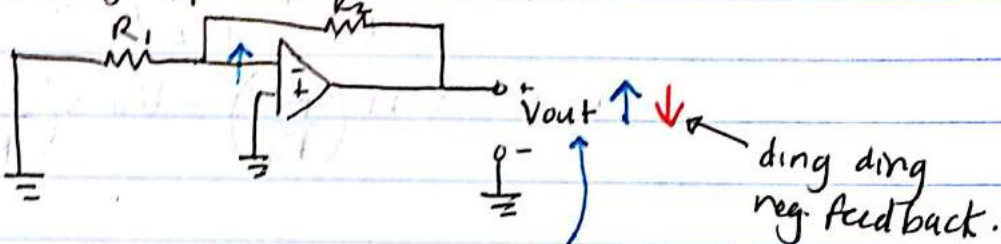 R1
R2
-
+
+
Vout ↑ ↓
-
ding ding
neg. feedback.